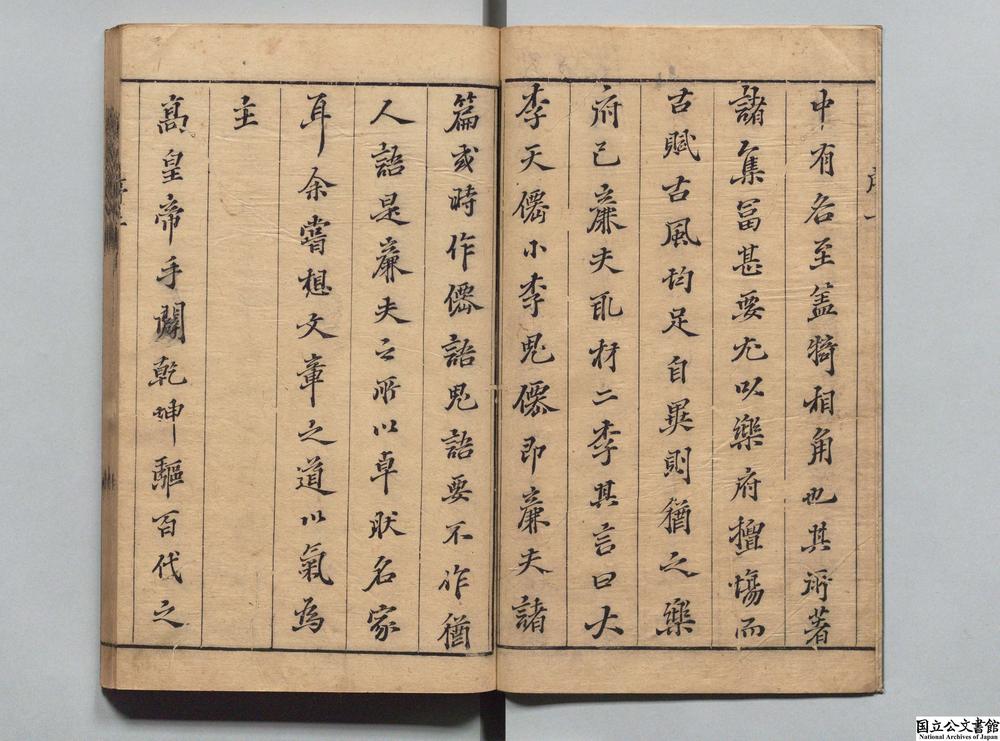 中有名至盖犄相角也其所著
諸集富甚要尤以樂府擅塲而
古賦古風均足自異則猶之樂
府已廉夫乩材二李其言曰大
李天僊小李鬼僊即廉夫諸
篇或時作僊語鬼語要不作猶
人語是廉夫之所以卓肰名家
耳余嘗想文章之道以氣為
主
高皇帝手闢乾坤驅百代之
国立公文書館
National Archives of Japan